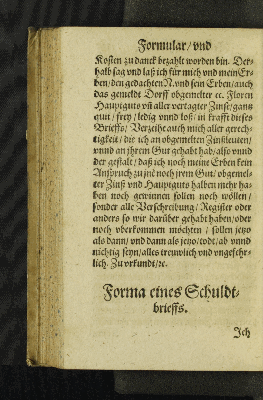 Formular/ vnd
Kosten zu danck bezahlt worden bin. Der-
halb sag vnd laß ich für mich vnd mein Er-
ben/ den gedachten N. vnd sein Erben/ auch
das gemeldt Dorff obgemelter ꝛc. Floren
Hauptguts vñ aller vertagter Zinß/ gantz
quit/ frey/ ledig vnnd loß/ in krafft dieses
Brieffs/ Verzeihe auch mich aller gerech-
tigkeit/ die ich an obgemelten Zinßleuten/
vnnd an jhrem Gut gehabt hab/ also vnnd
der gestalt/ daß ich noch meine Erben kein
Anspruch zu jnē noch jrem Gut/ obgemel-
ter Zinß vnd Hauptguts halben mehr ha-
ben noch gewinnen sollen noch wöllen/
sonder alle Verschreibung/ Register oder
anders so wir darüber gehabt haben/ oder
noch vberkommen möchten/ sollen jetzo
als dann/ vnd dann als jetzo/ todt/ ab vnnd
nichtig seyn/ alles trewlich vnd vngefehr-
lich. Zu vrkundt/ ꝛc.
Forma eines Schuldt-
brieffs.
Ich